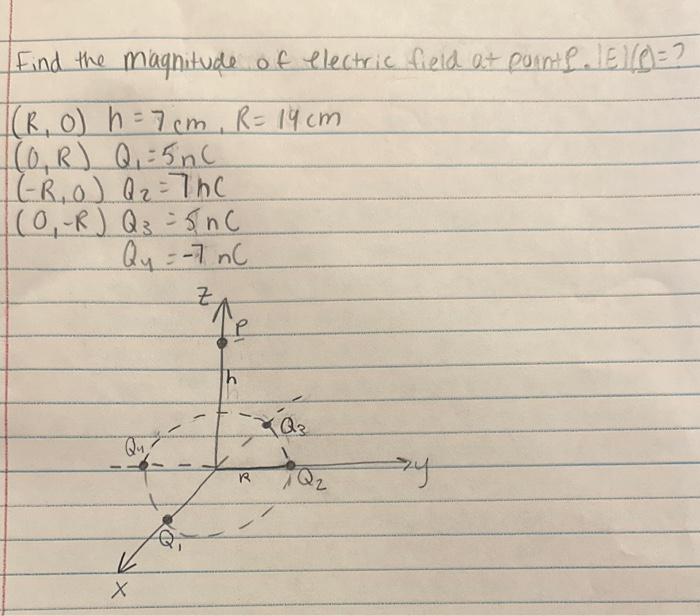 Find the magnitude of electric field at point P. |E|(P)=?
(R, 0) h = 7 cm, R = 14 cm
(0, R) Q1 = 5 nC
(-R, 0) Q2 = 7 nC
(0, -R) Q3 = 5 nC
Q4 = -7 nC
Z
P
h
Q3
Q4
R
Q2
y
Q1
X